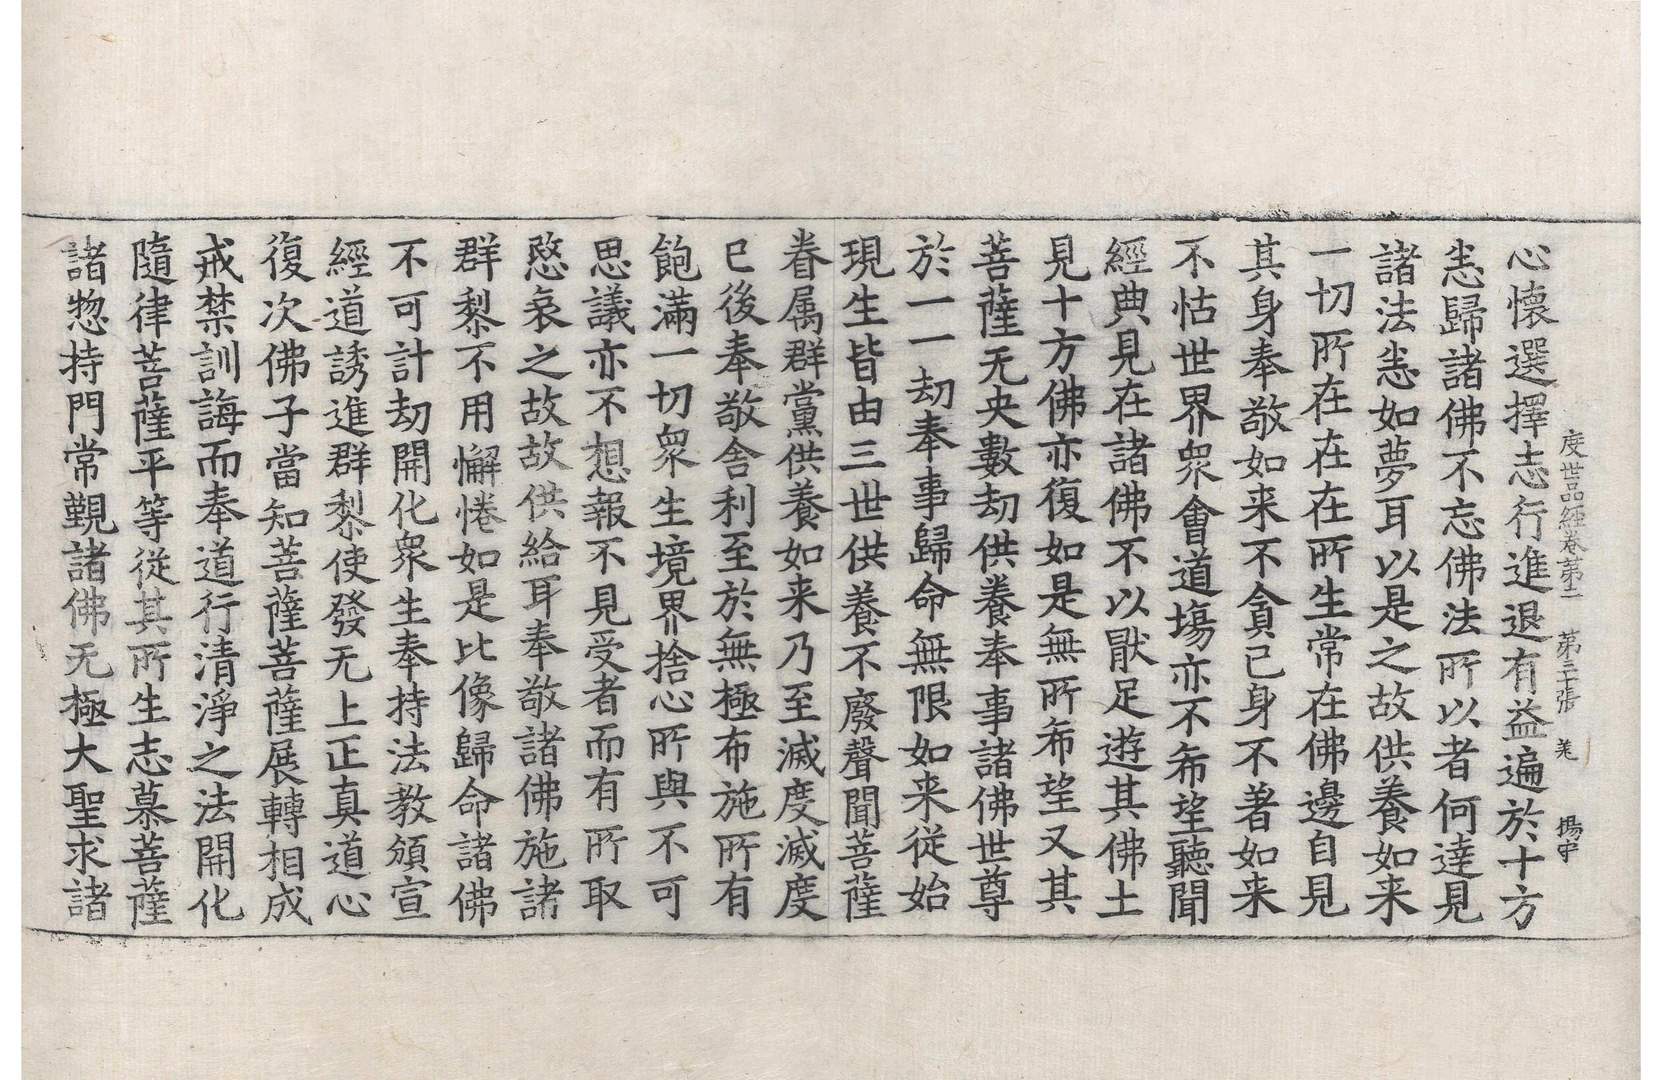 度世品經卷第二 第三張 羌 楊宇
心懷選擇志行進退有益遍於十方
恚歸諸佛不忘佛法所以者何達見
諸法恚如夢耳以是之故供養如来
一切所在在在所生常在佛邊自見
其身奉敬如来不貪己身不著如来
不怙世界衆會道場亦不希望聽聞
經典見在諸佛不以猒足遊其佛土
見十方佛亦復如是無所希望又其
菩薩无央數劫供養奉事諸佛世尊
於一一劫奉事歸命無限如来從始
現生皆由三世供養不廢聲聞菩薩
眷属群黨供養如来乃至滅度滅度
已後奉敬舍利至於無極布施所有
飽滿一切衆生境界捨心所與不可
思議亦不想報不見受者而有所取
愍哀之故故供給耳奉敬諸佛施諸
群黎不用懈惓如是比像歸命諸佛
不可計劫開化衆生奉持法教頒宣
經道誘進群黎使發无上正真道心
復次佛子當知菩薩菩薩展轉相成
戒禁訓誨而奉道行清淨之法開化
隨律菩薩平等從其所生志慕菩薩
諸惣持門常觀諸佛无極大聖求諸